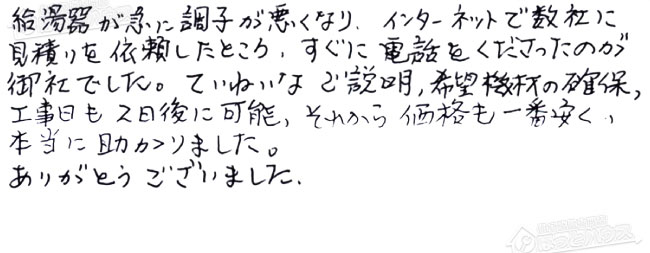 給湯器が急に調子が悪くなり、インターネットで数社に
見積りを依頼したところ、すぐに電話をくださったのが
御社でした。ていねいなご説明、希望機材の確保、
工事日も2日後に可能、それから価格も一番安く、
本当に助かりました。
ありがとうございました。